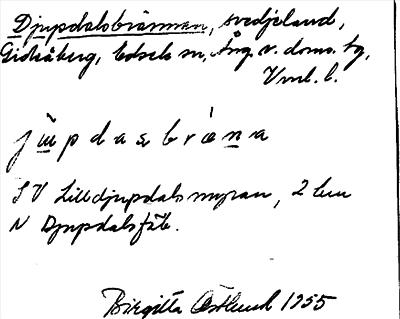 Djupdalsbrännan, svedjeland,
Gideåberg, Edsele sn, Ång. v. doms. tg,
Vml. l.
j ü p d a s b r ä n a
SV Lilldjupdalsmyran, 2 km
N Djupdalsfäb.
Birgitta Östlund 1955